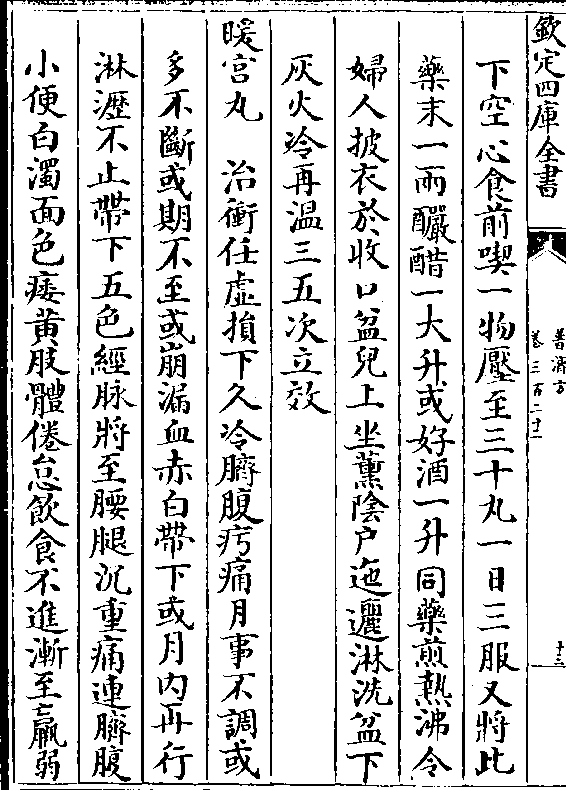 欽定四庫全書
普濟方
卷三百二十二
十三
下空心食前喫一物壓至三十丸一日三服又將此
藥末一兩釅醋一大升或好酒一升同藥煎熱沸令
婦人披衣於收口盆兒上坐薰陰户迤邐淋洗盆下
灰火冷再溫三五次立效
暖宫丸　治衝任虛損下久冷臍腹㽲痛月事不調或
多不斷或期不至或崩漏血赤白帶下或月内再行
淋瀝不止帶下五色經脉將至腰腿沉重痛連臍腹
小便白濁面色痿黄肢體倦怠飲食不進漸至羸弱